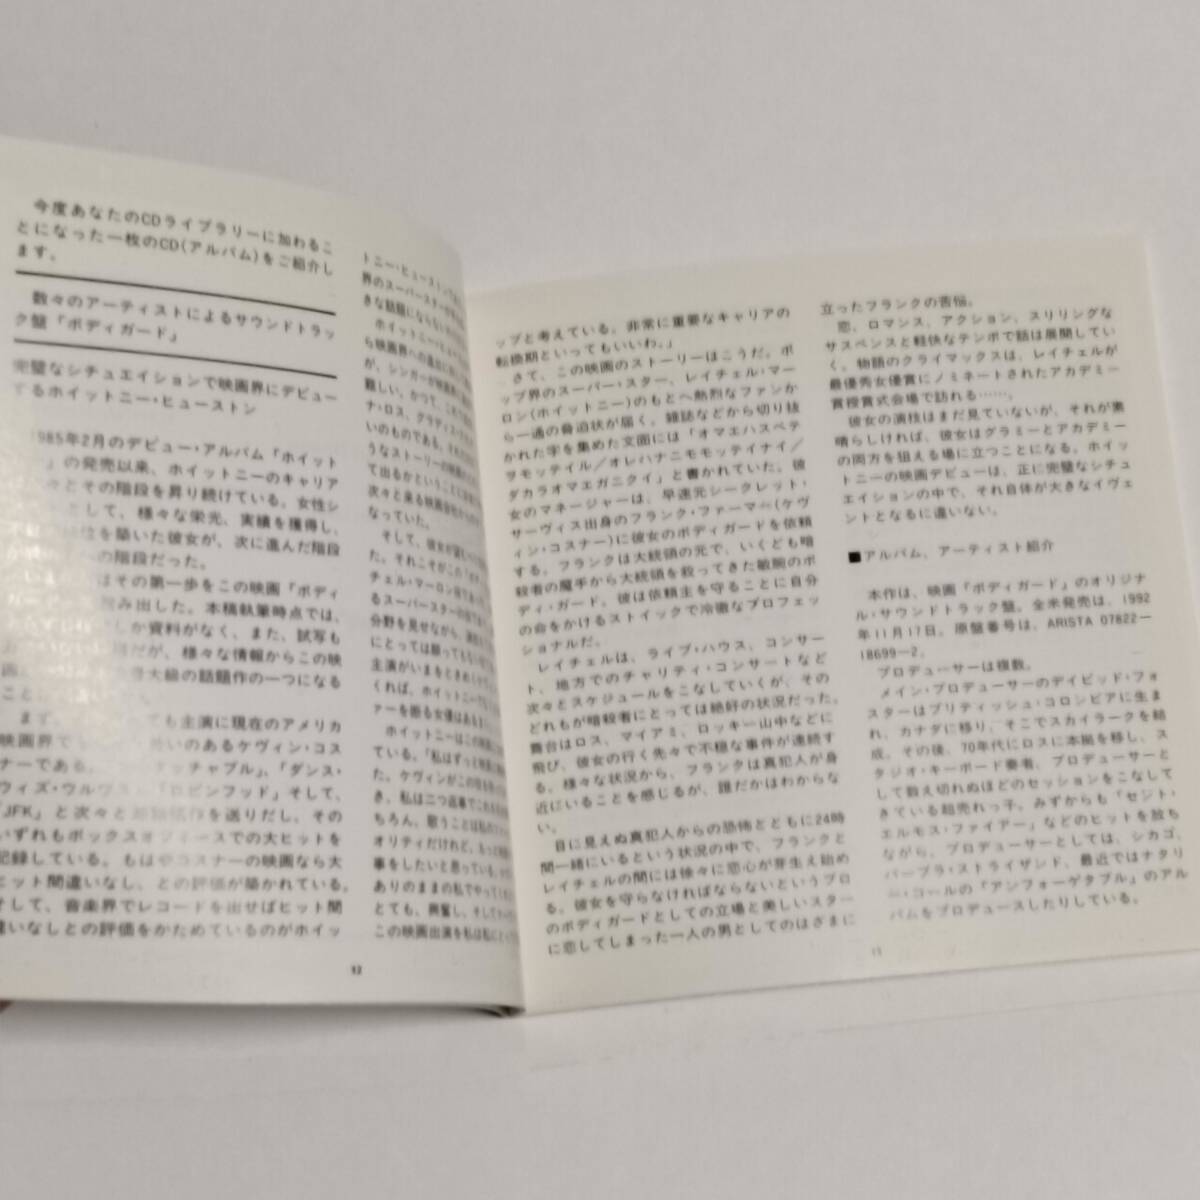 今度あなたのCDライブラリーに加わるこ
とになった一枚のCD(アルバム)をご紹介し
ます。
数々のアーティストによるサウンドトラッ
ク盤「ボディガード」
完璧なシチュエイションで映画界にデビュー
するホイットニー・ヒューストン
1985年2月のデビュー・アルバム『ホイット
』の発売以来、ホイットニーのキャリア
々とその階段を昇り続けている。女性シ
として、様々な栄光、実績を獲得し、
位を築いた彼女が、次に進んだ階段
への階段だった。
はその第一歩をこの映画『ボディ
踏み出した。本稿執筆時点では、
しか資料がなく、また、試写も
だが、様々な情報からこの映
大級の話題作の一つになる
こと
まず、 ても主演に現在のアメリカ
映画界で いのあるケヴィン・コス
ナーである。 タッチャブル」、「ダンス・
ウィズ・ウルヴス」「ロビンフッド」そして、
「JFK」と次々と 作を送りだし、その
いずれもボックスオフィースでの大ヒットを
記録している。もはやコスナーの映画なら大
ヒット間違いなし、との評価が築かれている。
そして、音楽界でレコードを出せばヒット間
違いなしとの評価をかためているのがホイッ
トニー・ヒューストン
界のスーパースターが
きな話題にならない
ホイットニー・ヒュ
ら映画界への進出に
が、シンガーが映画
難しい。かつて、
ナ・ロス、グラディス
いのものである。
うなストーリーの映画
て出るかということに
次々と来る映画会社から
なっていた。
そして、彼女が
た。それこそがこの「ボ
チェル・マーロン役であっ
るスーパースターの役
分野を見せながら、
にとっては願ってもない
主演がいまをときめく
くれば、ホイットニー
ァーを断る女優はあるま
ホイットニーはこの映画に
ている。「私はずっと映画に
た。ケヴィンがこの話を
き、私は二つ返事でこれを
ちろん、歌うことは私の
オリティだけれど、もっと
事をしたいと思っている。
ありのままの私でやって
とても、興奮し、そして
この映画出演を私は私に
12
ップと考えている。非常に重要なキャリアの
転換期といってもいいわ。」
さて、この映画のストーリーはこうだ。ポ
ップ界のスーパー・スター、レイチェル・マー
ロン(ホイットニー)のもとへ熱烈なファンか
ら一通の脅迫状が届く。雑誌などから切り抜
かれた字を集めた文面には「オマエハスベテ
ヲモッテイル/オレハナニモモッテイナイ/
ダカラオマエガニクイ」と書かれていた。彼
女のマネージャーは、早速元シークレット・
サーヴィス出身のフランク・ファーマー(ケヴ
ィン・コスナー)に彼女のボディガードを依頼
する。フランクは大統領の元で、いくども暗
殺者の魔手から大統領を救ってきた敏腕のボ
ディ・ガード。彼は依頼主を守ることに自分
の命をかけるストイックで冷徹なプロフェッ
ショナルだ。
レイチェルは、ライブ・ハウス、コンサー
ト、地方でのチャリティ・コンサートなど
次々とスケジュールをこなしていくが、その
どれもが暗殺者にとっては絶好の状況だった。
舞台はロス、マイアミ、ロッキー山中などに
飛び、彼女の行く先々で不穏な事件が連続す
る。様々な状況から、フランクは真犯人が身
近にいることを感じるが、誰だかはわからな
い。
目に見えぬ真犯人からの恐怖とともに24時
間一緒にいるという状況の中で、フランクと
レイチェルの間には徐々に恋心が芽生え始め
る。彼女を守らなければならないというプロ
のボディガードとしての立場と美しいスター
に恋してしまった一人の男としてのはざまに
立ったフランクの苦悩。
恋、ロマンス、アクション、スリリングな
サスペンスと軽快なテンポで話は展開してい
く。物語のクライマックスは、レイチェルが
最優秀女優賞にノミネートされたアカデミー
賞授賞式会場で訪れる……。
彼女の演技はまだ見ていないが、それが素
晴らしければ、彼女はグラミーとアカデミー
の両方を狙える場に立つことになる。ホイッ
トニーの映画デビューは、正に完璧なシチュ
エイションの中で、それ自体が大きなイヴェ
ントとなるに違いない。
■アルバム、アーティスト紹介
本作は、映画『ボディガード』のオリジナ
ル・サウンドトラック盤。全米発売は、1992
年11月17日。原盤番号は、ARISTA 07822―
18699―2。
プロデューサーは複数。
メイン・プロデューサーのデイビッド・フォ
スターはブリティッシュ・コロンビアに生ま
れ、カナダに移り、そこでスカイラークを結
成。その後、70年代にロスに本拠を移し、ス
タジオ・キーボード奏者、プロデューサーと
して数え切れぬほどのセッションをこなして
きている超売れっ子。みずからも「セント・
エルモス・ファイアー」などのヒットを放ち
ながら、プロデューサーとしては、シカゴ、
バーブラ・ストライザンド、最近ではナタリ
ー・コールの『アンフォーゲタブル』のアル
バムをプロデュースしたりしている。